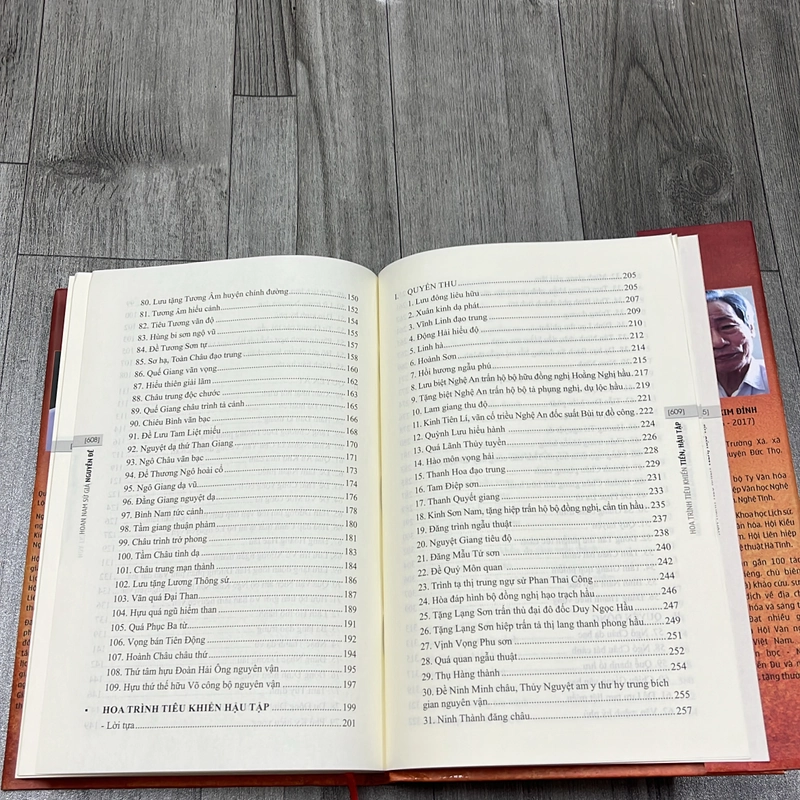 80. Lưu tặng Tương Âm huyện chính đường 150
81. Tương âm hiểu cảnh 152
82. Tiêu Tương vãn độ 154
83. Hùng bi sơn ngộ vũ 155
84. Đề Tương Sơn tự 157
85. Sơ hạ, Toàn Châu đạo trung 158
86. Quế Giang vãn vọng 160
87. Hiểu thiên giải lãm 162
88. Châu trung độc chước 163
89. Quế Giang châu trình tả cảnh 165
90. Chiêu Bình vãn bạc 166
91. Đề Lưu Tam Liệt miếu 168
92. Nguyệt dạ thứ Than Giang 170
93. Ngô Châu vãn bạc 171
94. Đề Thương Ngô hoài cổ 173
95. Ngô Giang dạ vũ 174
96. Đằng Giang nguyệt dạ 176
97. Bình Nam tức cảnh 177
98. Tầm giang thuận phầm 180
99. Châu trình trở phong 181
100. Tầm Châu tình dạ 183
101. Châu trung mạn thành 184
102. Lưu tặng Lương Thông sứ 186
103. Vãn quá Đại Than 187
104. Hựu quá ngũ hiểm than 189
105. Quá Phục Ba từ 191
106. Vọng bán Tiên Động 192
107. Hoành Châu châu thứ 194
108. Thứ tâm hựu Đoàn Hải Ông nguyên vận 195
109. Hựu thứ thế hữu Võ công bộ nguyên vận 197
• HOA TRÌNH TIÊU KHIỂN HẬU TẬP 199
- Lời tựa 201
[608]
HOAN NAM SỨ GIẢ NGUYỄN ĐỀ
I. QUYỂN THU 205
1. Lưu đông liêu hữu 205
2. Xuân kinh dạ phát 207
3. Vĩnh Linh đạo trung 209
4. Động Hải hiểu độ 210
5. Linh hà 212
6. Hoành Sơn 214
7. Hồi hương ngẫu phú 215
8. Lưu biệt Nghệ An trấn hộ bộ hữu đồng nghị Hoằng Nghị hầu 217
9. Tặng biệt Nghệ An trấn hộ bộ tả phụng nghị, dụ lộc hầu 219
10. Lam giang thu độ 221
11. Kinh Tiên Lí, vãn cố triều Nghệ An đốc suất Bùi tư đồ công 222
12. Quỳnh Lưu hiểu hành 224
13. Quá Lãnh Thủy tuyền 226
14. Hào môn vọng hải 228
15. Thanh Hoa đạo trung 229
16. Tam Điệp sơn 231
17. Thanh Quyết giang 233
18. Kinh Sơn Nam, tặng hiệp trấn hộ bộ đồng nghị, cẩn tín hầu 235
19. Đăng trình ngẫu thuật 237
20. Nguyệt Giang tiêu độ 238
21. Đăng Mẫu Tử sơn 240
22. Đề Quỷ Môn quan 242
23. Trình tạ thị trung ngự sử Phan Thai Công 244
24. Hòa đáp hình bộ đồng nghị hạo trạch hầu 246
25. Tặng Lạng Sơn trấn thủ đại đô đốc Duy Ngọc Hầu 247
26. Tặng Lạng Sơn hiệp trấn tả thị lang thanh phong hầu 249
27. Vịnh Vọng Phu sơn 251
28. Quá quan ngẫu thuật 252
29. Thụ Hàng thành 254
30. Đề Ninh Minh châu, Thủy Nguyệt am y thư hy trung bích
gian nguyên vận 255
31. Ninh Thành đăng châu 257
[609]
HOA TRÌNH TIÊU KHIỂN TIỀN, HẬU TẬP
KIM ĐỈNH
- 2017)